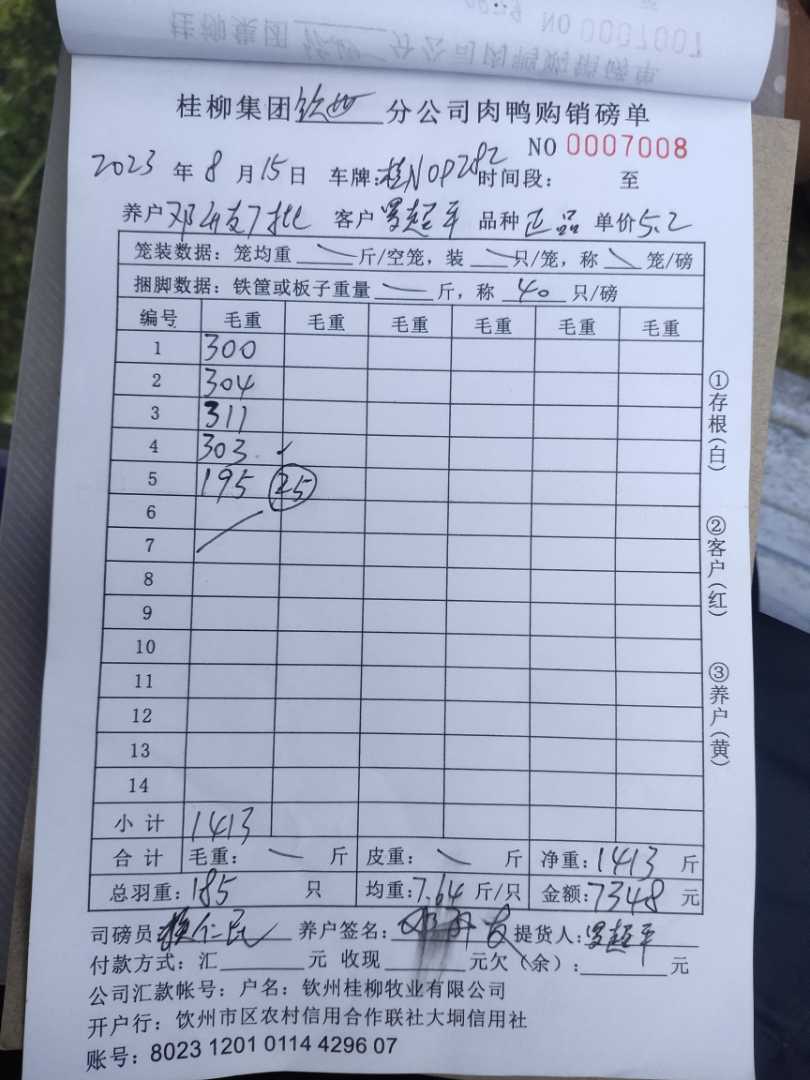 NO 0007007
桂柳集团 分公司肉鸭购销磅单
桂柳集团钦州分公司肉鸭购销磅单
NO 0007008
2023年8月15日 车牌:桂N0P282 时间段: 至
养户 邓 批 客户 罗超平 品种 正品 单价5.2
笼装数据：笼均重 斤/空笼，装 只/笼，称 笼/磅
捆脚数据：铁筐或板子重量 斤，称 40 只/磅
编号 毛重 毛重 毛重 毛重 毛重 毛重
1 300
2 304
3 311
4 303
5 195 25
6
7
8
9
10
11
12
13
14
小计 1413
合计 毛重： 斤 皮重： 斤 净重：1413 斤
总羽重：185 只 均重：7.64 斤/只 金额：7348 元
①存根(白)
②客户(红)
③养户(黄)
司磅员 仁民 养户签名： 提货人：罗超平
付款方式：汇 元 收现 元欠（余）： 元
公司汇款帐号：户名：钦州桂柳牧业有限公司
开户行：饮州市区农村信用合作联社大垌信用社
账号：8023 1201 0114 4296 07